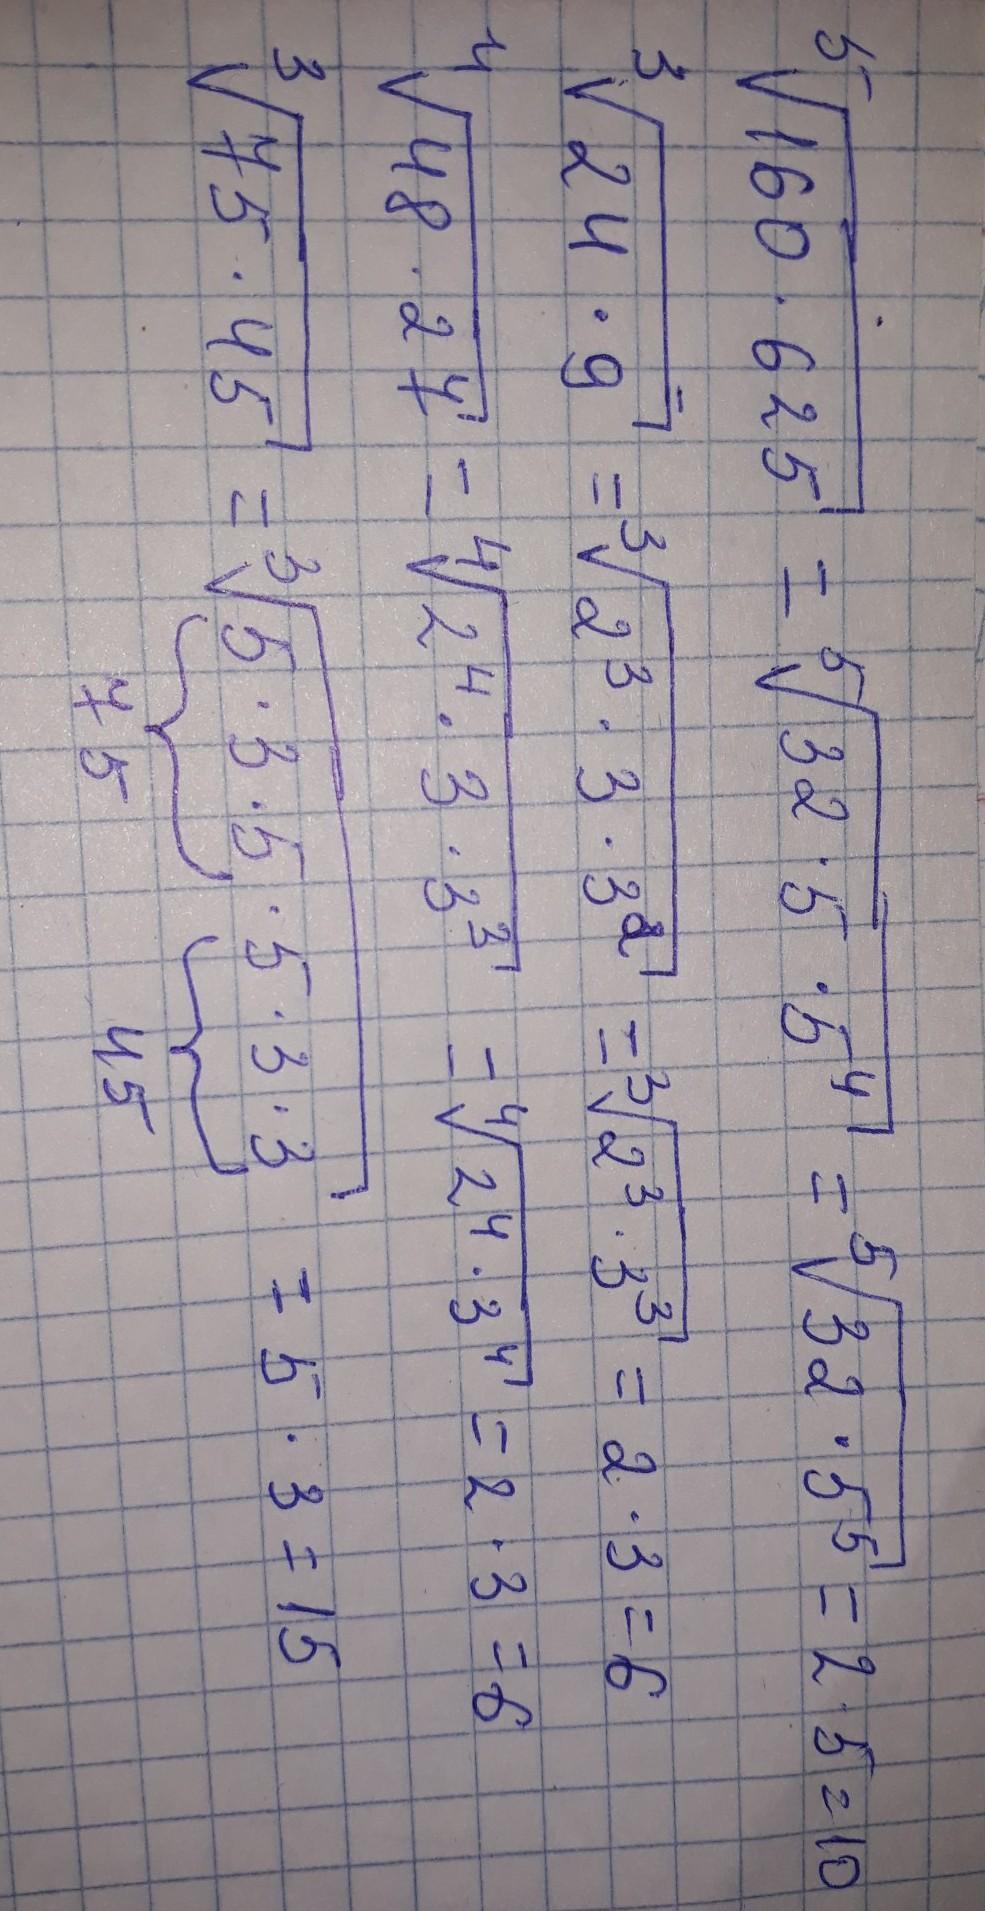 ⁵√160·625 = ⁵√32·5·5⁴ = ⁵√32·5⁵ = 2·5=10
³√24·9 = ³√2³·3·3² = ³√2³·3³ = 2·3=6
⁴√48·27 = ⁴√2⁴·3·3³ = ⁴√2⁴·3⁴ = 2·3=6
³√75·45 = ³√5·3·5·5·3·3 = 5·3=15
75 45